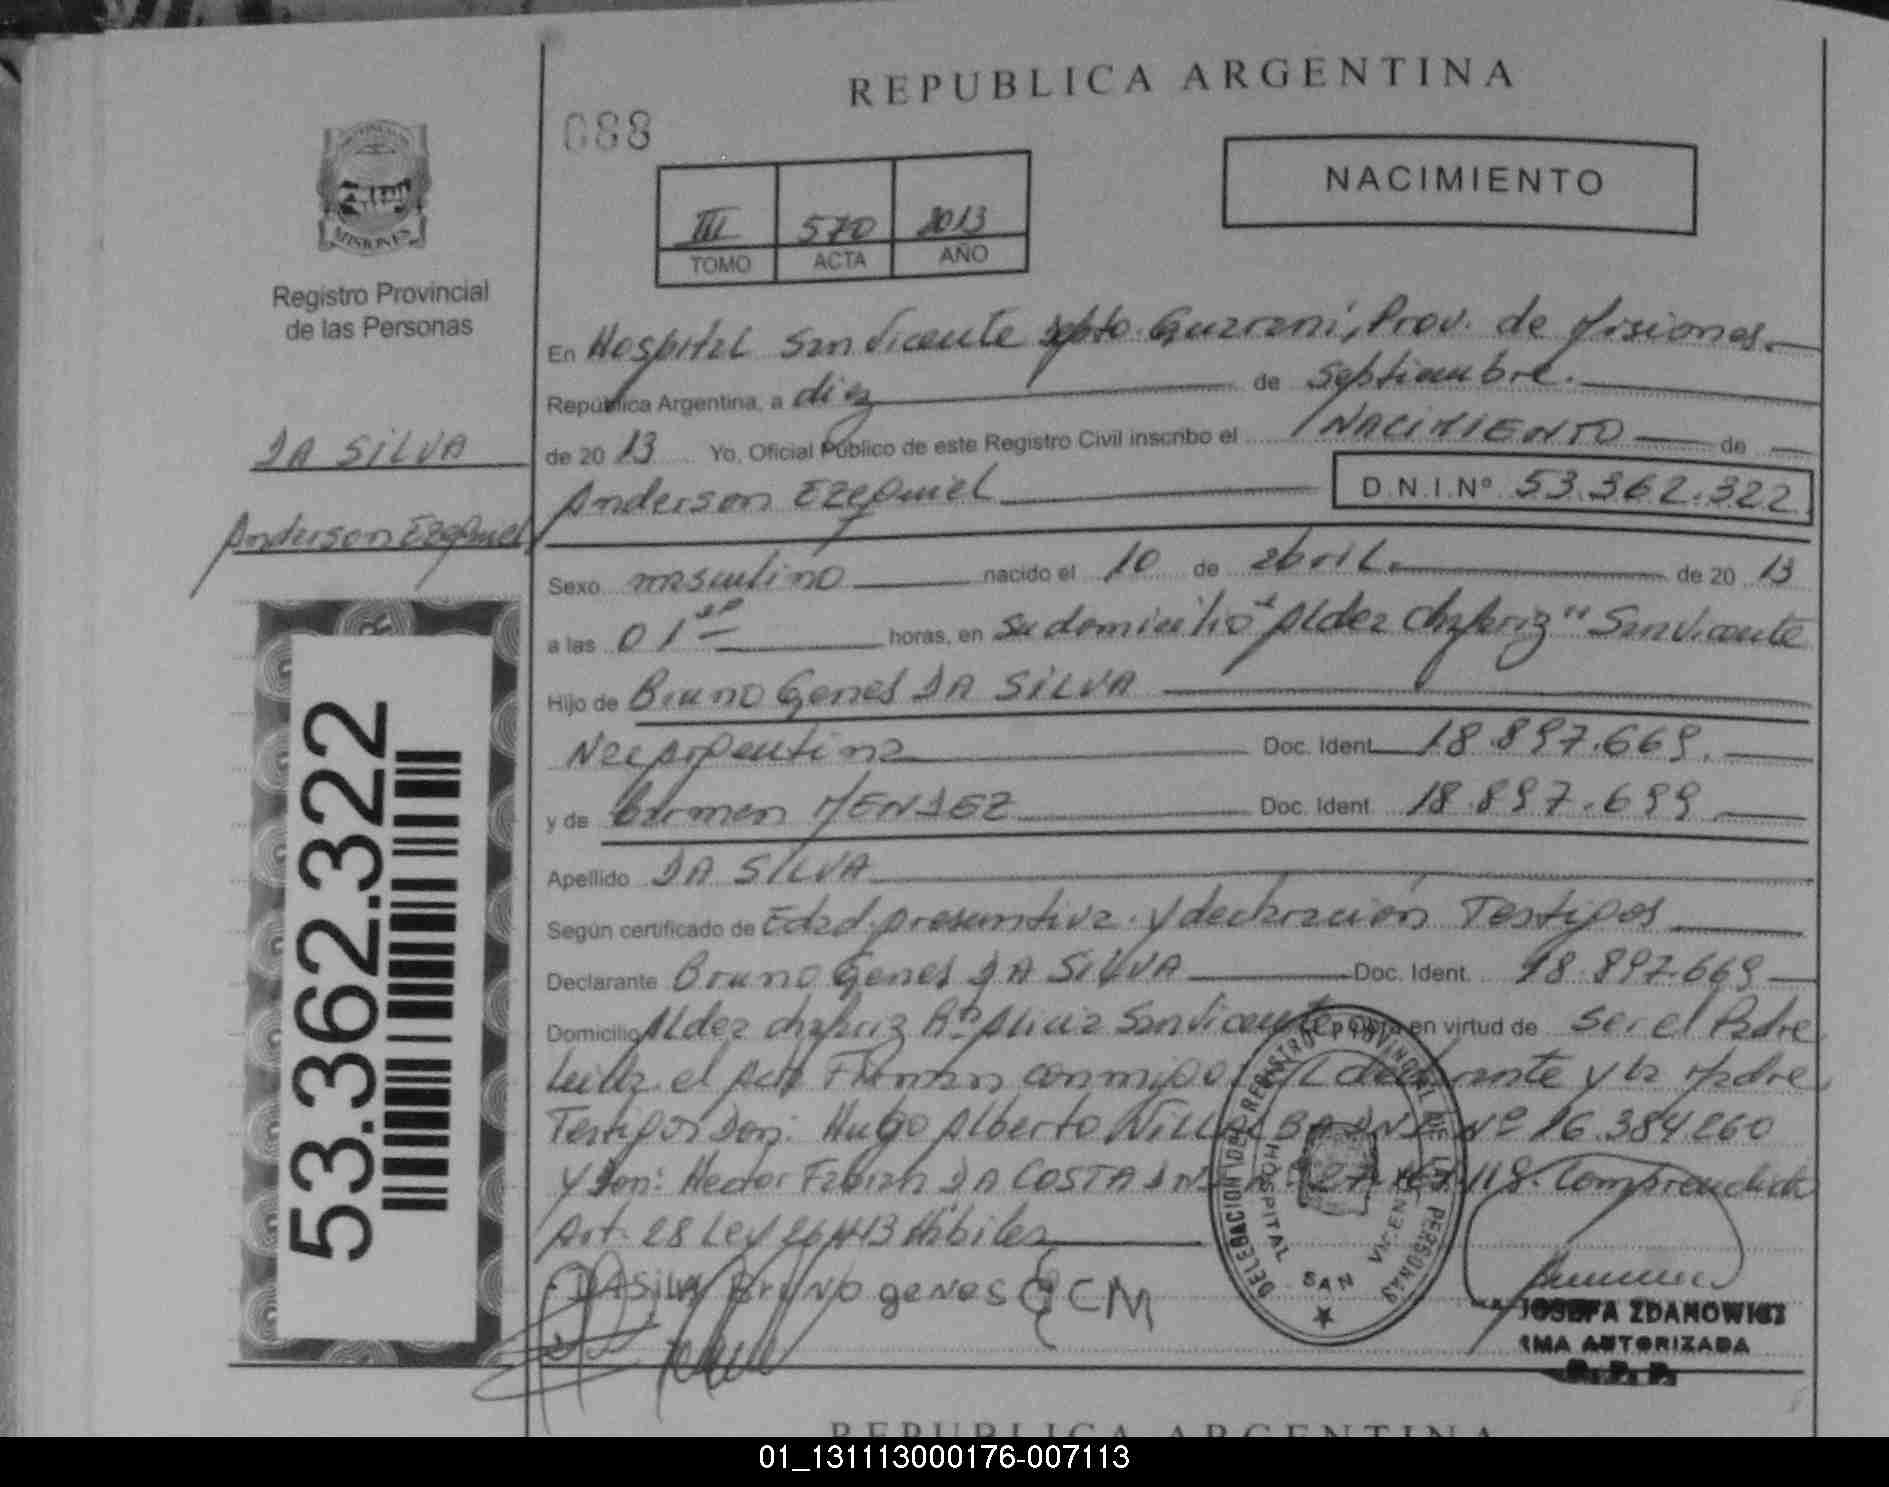 REPUBLICA ARGENTINA
088
NACIMIENTO
III 570 2013
TOMO ACTA AÑO
MISIONES
Registro Provincial
de las Personas
En Hospital San Vicente Dpto. Guarani, Prov. de Misiones.
República Argentina, a diez de Septiembre.
de 2013 Yo, Oficial Público de este Registro Civil inscribo el NACIMIENTO de
DA SILVA
Anderson Ezequiel D.N.I.Nº 53.362.322
Anderson Ezequiel
Sexo masculino nacido el 10 de abril. de 2013
a las 01 horas, en su domicilio "Aldea Chafariz" San Vicente
Hijo de Bruno Genes DA SILVA
Nac argentina Doc. Ident. 18.897.669.
y de Carmen MENDEZ Doc. Ident. 18.897.699
Apellido DA SILVA
Según certificado de Edad presuntiva y declaración Testigos
Declarante Bruno Genes DA SILVA Doc. Ident. 18.897.669
Domicilio Aldea Chafariz Aº Alicia San Vicente en virtud de ser el Padre
el acta Firman conmigo el declarante y la Madre
Testigos Don: Hugo Alberto Nº 16.384260
y Don: Hector Fabian DA COSTA 118. Comprendida
Art. 28 Ley 26413 Hábiles
DA SILVA Bruno genes CM
DELEGACION DEL REGISTRO PROVINCIAL DE LAS PERSONAS
HOSPITAL SAN VICENTE
JOSEFA ZDANOWICZ
FIRMA AUTORIZADA
R.P.P.
53.362.322
REPUBLICA ARGENTINA
01_131113000176-007113